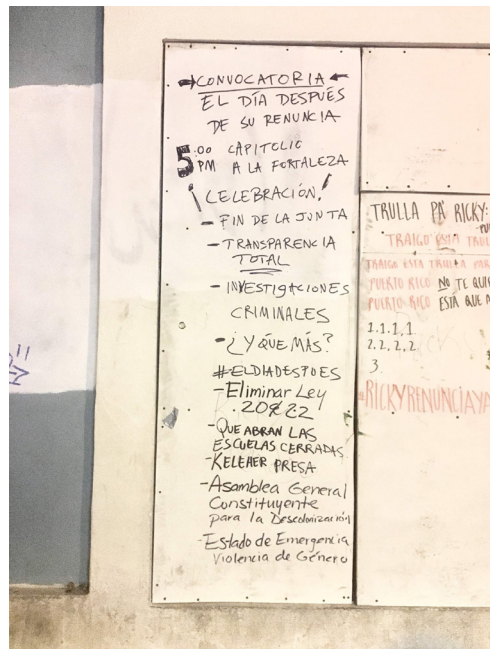 →CONVOCATORIA←
EL DÍA DESPUÉS
DE SU RENUNCIA
5:00 PM CAPITOLIO
A LA FORTALEZA
¡CELEBRACIÓN!
- FIN DE LA JUNTA
- TRANSPARENCIA
TOTAL
- INVESTIGACIONES
CRIMINALES
- ¿Y QUÉ MÁS?
#ELDIADESPUES
- Eliminar Ley
20 & 22
- QUE ABRAN LAS
ESCUELAS CERRADAS
- KELEHER PRESA
- Asamblea General
Constituyente
para la Descolonización
- Estado de Emergencia
Violencia de Género
TRULLA PA' RICKY:
TRAIGO ESTA
TRAIGO ESTA TRULLA PAR
PUERTO RICO NO TE QUI
PUERTO RICO ESTÁ QUE
1.1.1.1
2.2.2.2
3
#RICKYRENUNCIAYA